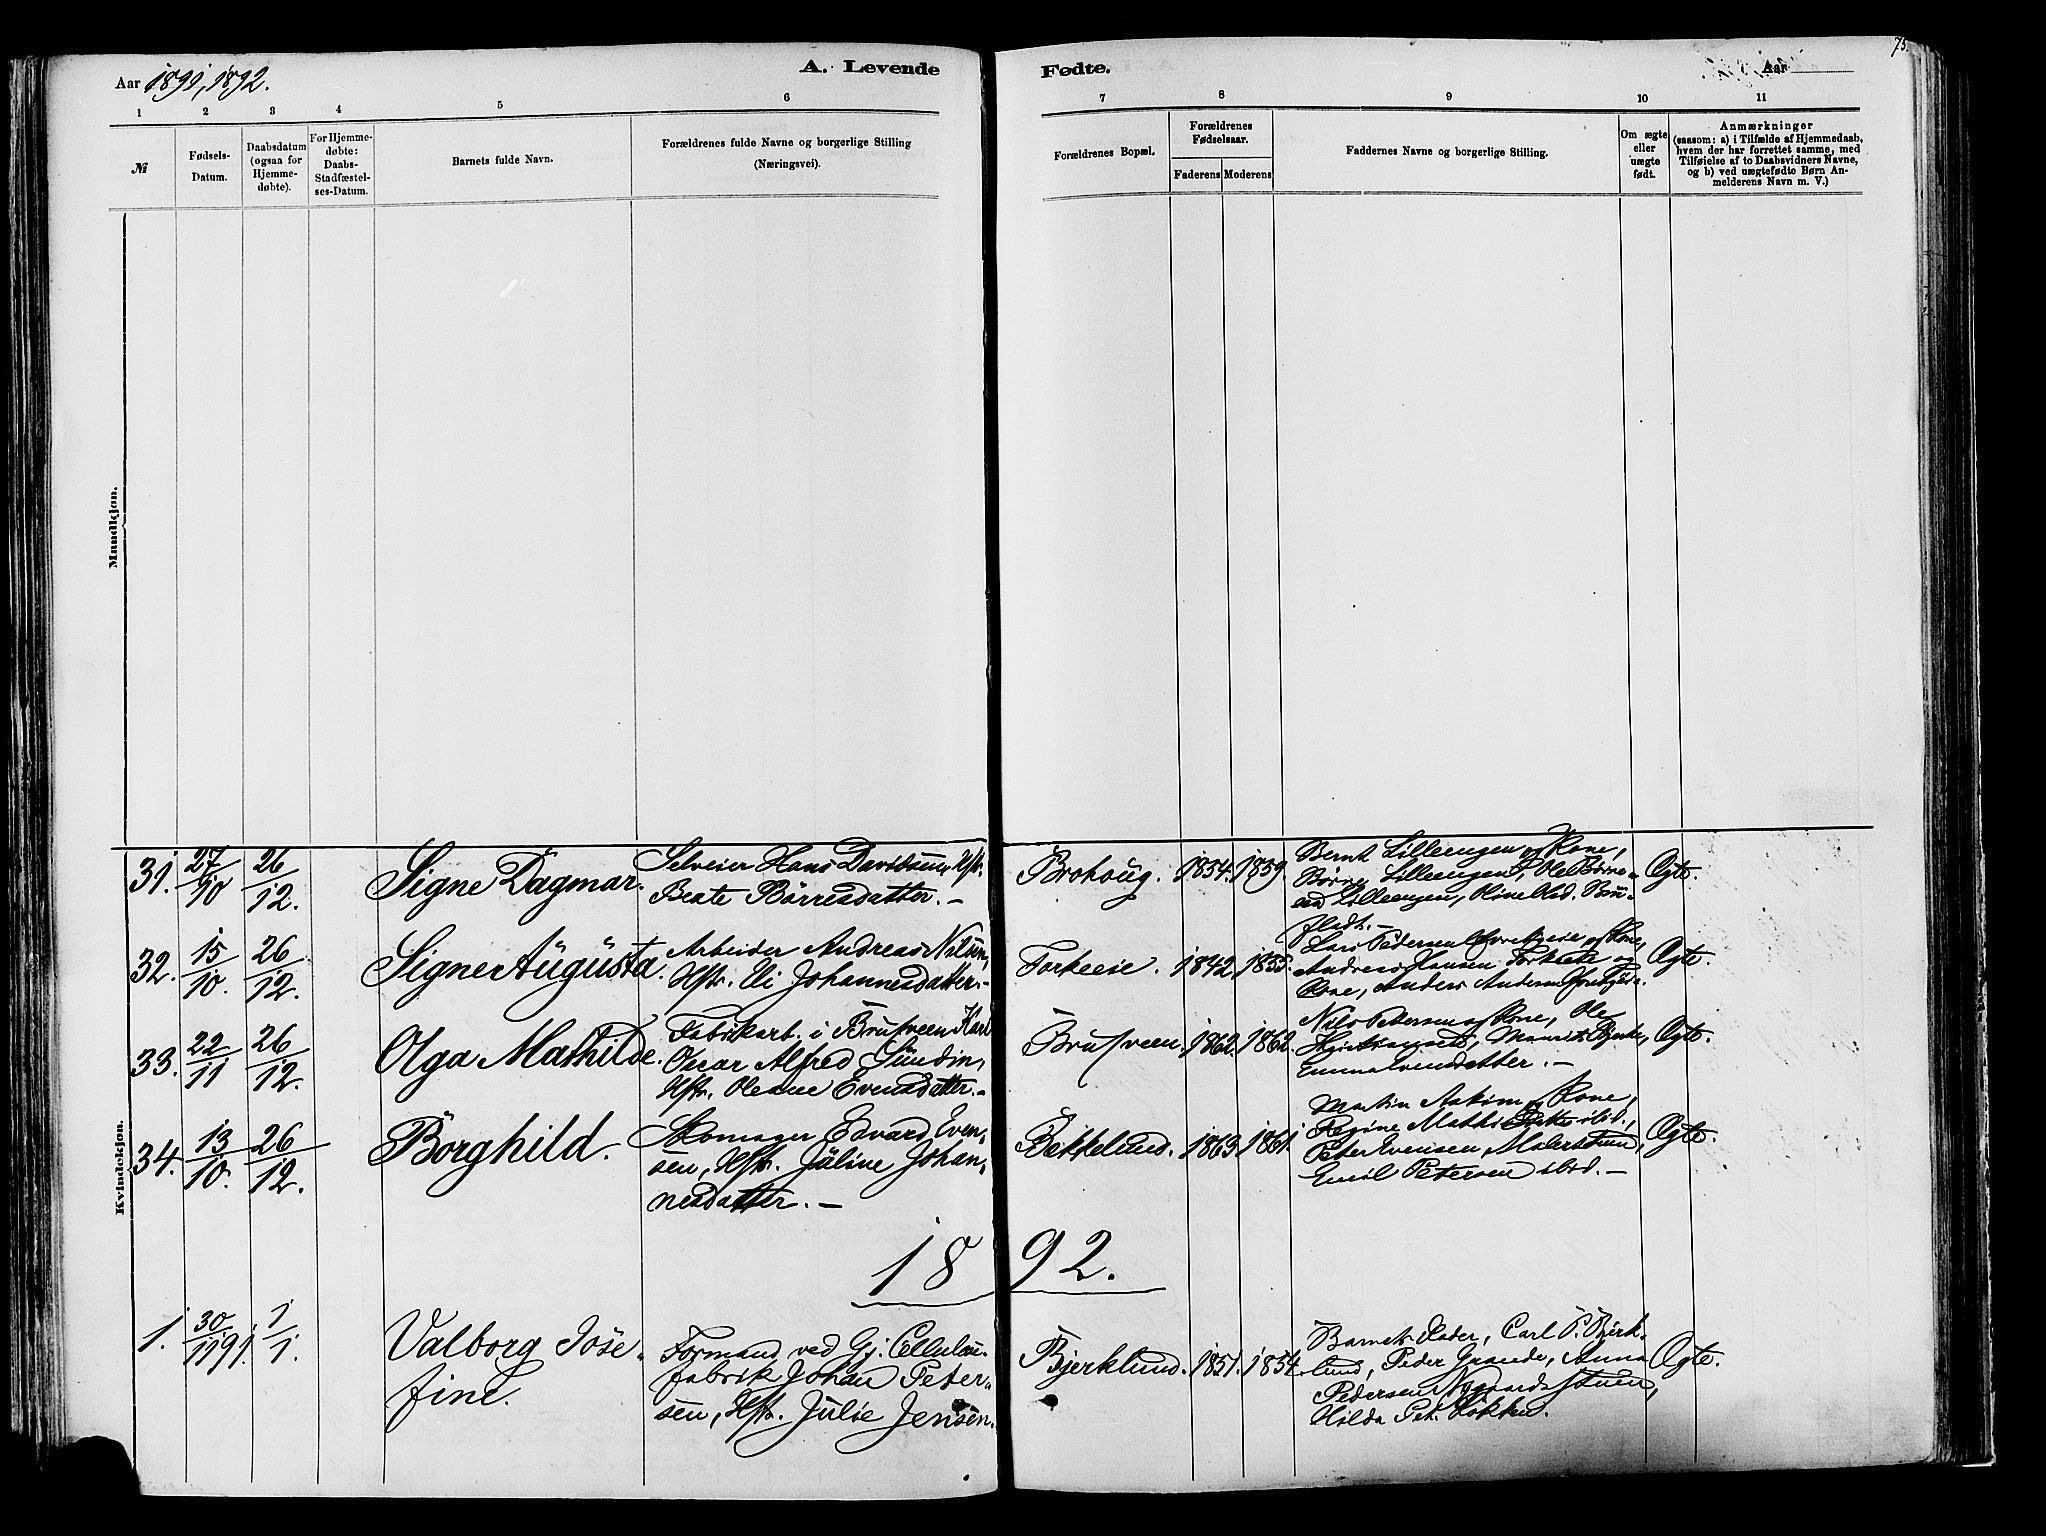 75.
Aar 1891, 1892.
A. Levende
Fødte.
Aar
1 2 3 4 5 6
7 8 9 10 11
№
Fødsels-
Datum.
Daabsdatum
(ogsaa for
Hjemme-
døbte).
For Hjemme-
døbte:
Daabs-
Stadfæstel-
ses-Datum.
Barnets fulde Navn.
Forældrenes fulde Navne og borgerlige Stilling
(Næringsvei).
Forældrenes Bopæl.
Forældrenes
Fødselsaar.
Faderens Moderens
Faddernes Navne og borgerlige Stilling.
Om ægte
eller
uægte
født.
Anmærkninger
(saasom: a) i Tilfælde af Hjemmedaab,
hvem der har forrettet samme, med
Tilføielse af to Daabsvidners Navne,
og b) ved uægtefødte Børn An-
melderens Navn m. V.)
Mandkjøn.
Kvindekjøn.
31. 27/10 26/12.
Signe Dagmar.
Selveier Hans Davidsen, Hst.
Beate Börresdatter. —
Brohoug. 1854. 1859.
Bernt Lilleengen og Kone,
Børre Lilleengen, Ole Børre-
sen Lilleengen,
fledt. —
Ægte.
32. 15/10. 26/12.
Signe Augusta.
Arbeider Andreas Nilsen,
Hst. Eli Johannesdatter. —
Torkeeie. 1842. 1855.
Lars Pedersen og Kone,
Andreas Hansen og
Kone, Anders Andersen
Ægte.
33. 22/11 26/12.
Olga Mathilde.
Fabrikarb. i Brufveen Karl
Oscar Alfred Sundin,
Hst. Oleane Evensdatter. —
Brufveen. 1862. 1862.
Nils Petersen og Kone, Ole
Emma Evensdatter. —
Ægte.
34. 13/10. 26/12.
Borghild.
Skomager Edvard Even-
sen, Hst. Juline Johan-
nesdatter. —
Bekkelund. 1863. 1861.
Martin og Kone,
Regine ibid.,
Peter Evensen
Emil Petersen ibid. —
Ægte.
1892.
1. 30/11 91. 1/1.
Valborg Jose-
fine.
Formand ved Gj. Cellulou-
fabrik Johan Peter-
sen, Hst. Julie Jensen.
Bjerklund. 1851. 1854.
Barnets Fader, Carl P. Bjerk-
lund, Peder Grande, Anna
Pedersen Nygaardsstuen,
Hilda Pet. Løkken.
Ægte.